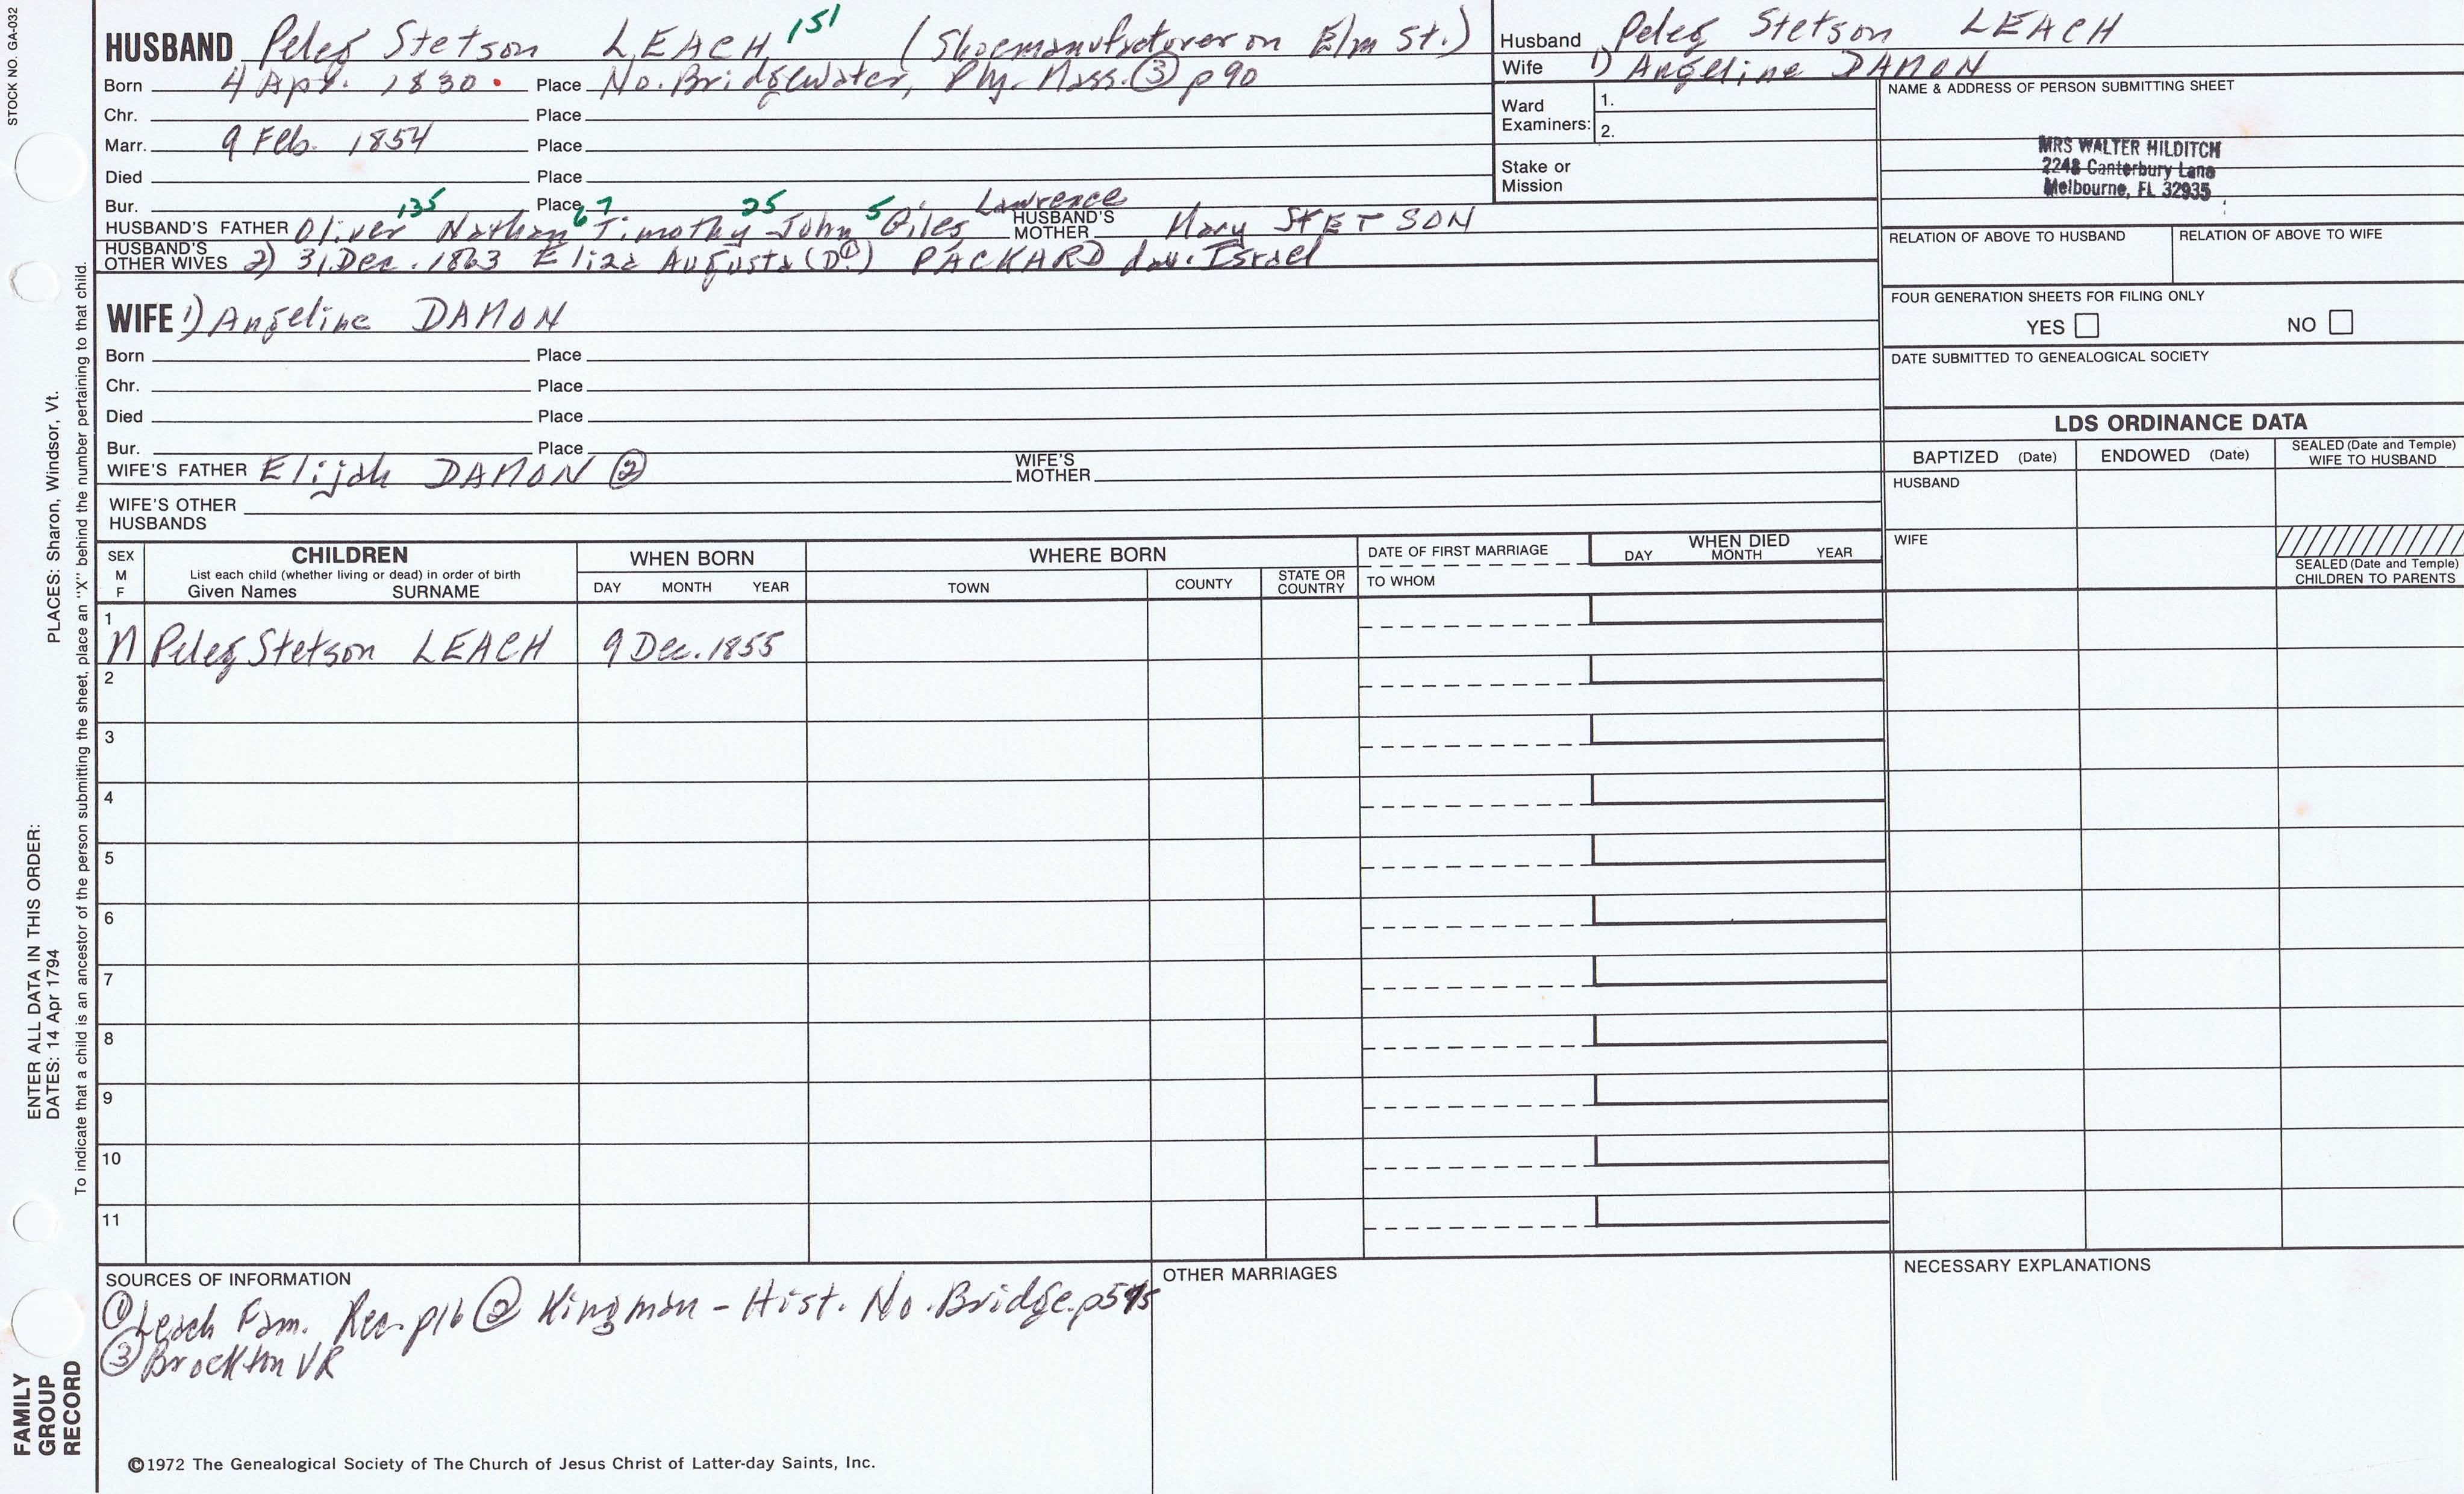 STOCK NO. GA-032
HUSBAND Peleg Stetson LEACH 151 (Shoemanufacturer on Elm St.)
Born 4 Apr. 1830 Place No. Bridgewater, Ply. Mass. ③ p90
Chr. Place
Marr. 9 Feb. 1854 Place
Died Place
Bur. Place
135 67 25 5 Lawrence
HUSBAND'S FATHER Oliver Nathan Timothy John Giles HUSBAND'S MOTHER Mary STETSON
HUSBAND'S OTHER WIVES 2) 31 Dec. 1863 Eliza Augusta (D①) PACKARD dau. Israel
WIFE 1) Angeline DAMON
Born Place
Chr. Place
Died Place
Bur. Place
WIFE'S FATHER Elijah DAMON ② WIFE'S MOTHER
WIFE'S OTHER HUSBANDS
Husband Peleg Stetson LEACH
Wife 1) Angeline DAMON
Ward Examiners: 1.
2.
Stake or Mission
NAME & ADDRESS OF PERSON SUBMITTING SHEET
MRS WALTER HILDITCH
2248 Canterbury Lane
Melbourne, FL 32935
RELATION OF ABOVE TO HUSBAND RELATION OF ABOVE TO WIFE
FOUR GENERATION SHEETS FOR FILING ONLY
YES NO
DATE SUBMITTED TO GENEALOGICAL SOCIETY
LDS ORDINANCE DATA
BAPTIZED (Date) ENDOWED (Date) SEALED (Date and Temple) WIFE TO HUSBAND
HUSBAND
WIFE
SEALED (Date and Temple) CHILDREN TO PARENTS
SEX M F
CHILDREN
List each child (whether living or dead) in order of birth
Given Names SURNAME
WHEN BORN
DAY MONTH YEAR
WHERE BORN
TOWN COUNTY STATE OR COUNTRY
DATE OF FIRST MARRIAGE
TO WHOM
WHEN DIED
DAY MONTH YEAR
1
M Peleg Stetson LEACH 9 Dec. 1855
2
3
4
5
6
7
8
9
10
11
SOURCES OF INFORMATION
① Leach Fam. Rec. p16 ② Kingman - Hist. No. Bridge. p575
③ Brockton VR
OTHER MARRIAGES
NECESSARY EXPLANATIONS
©1972 The Genealogical Society of The Church of Jesus Christ of Latter-day Saints, Inc.
FAMILY
GROUP
RECORD
ENTER ALL DATA IN THIS ORDER:
DATES: 14 Apr 1794
PLACES: Sharon, Windsor, Vt.
To indicate that a child is an ancestor of the person submitting the sheet, place an "X" behind the number pertaining to that child.